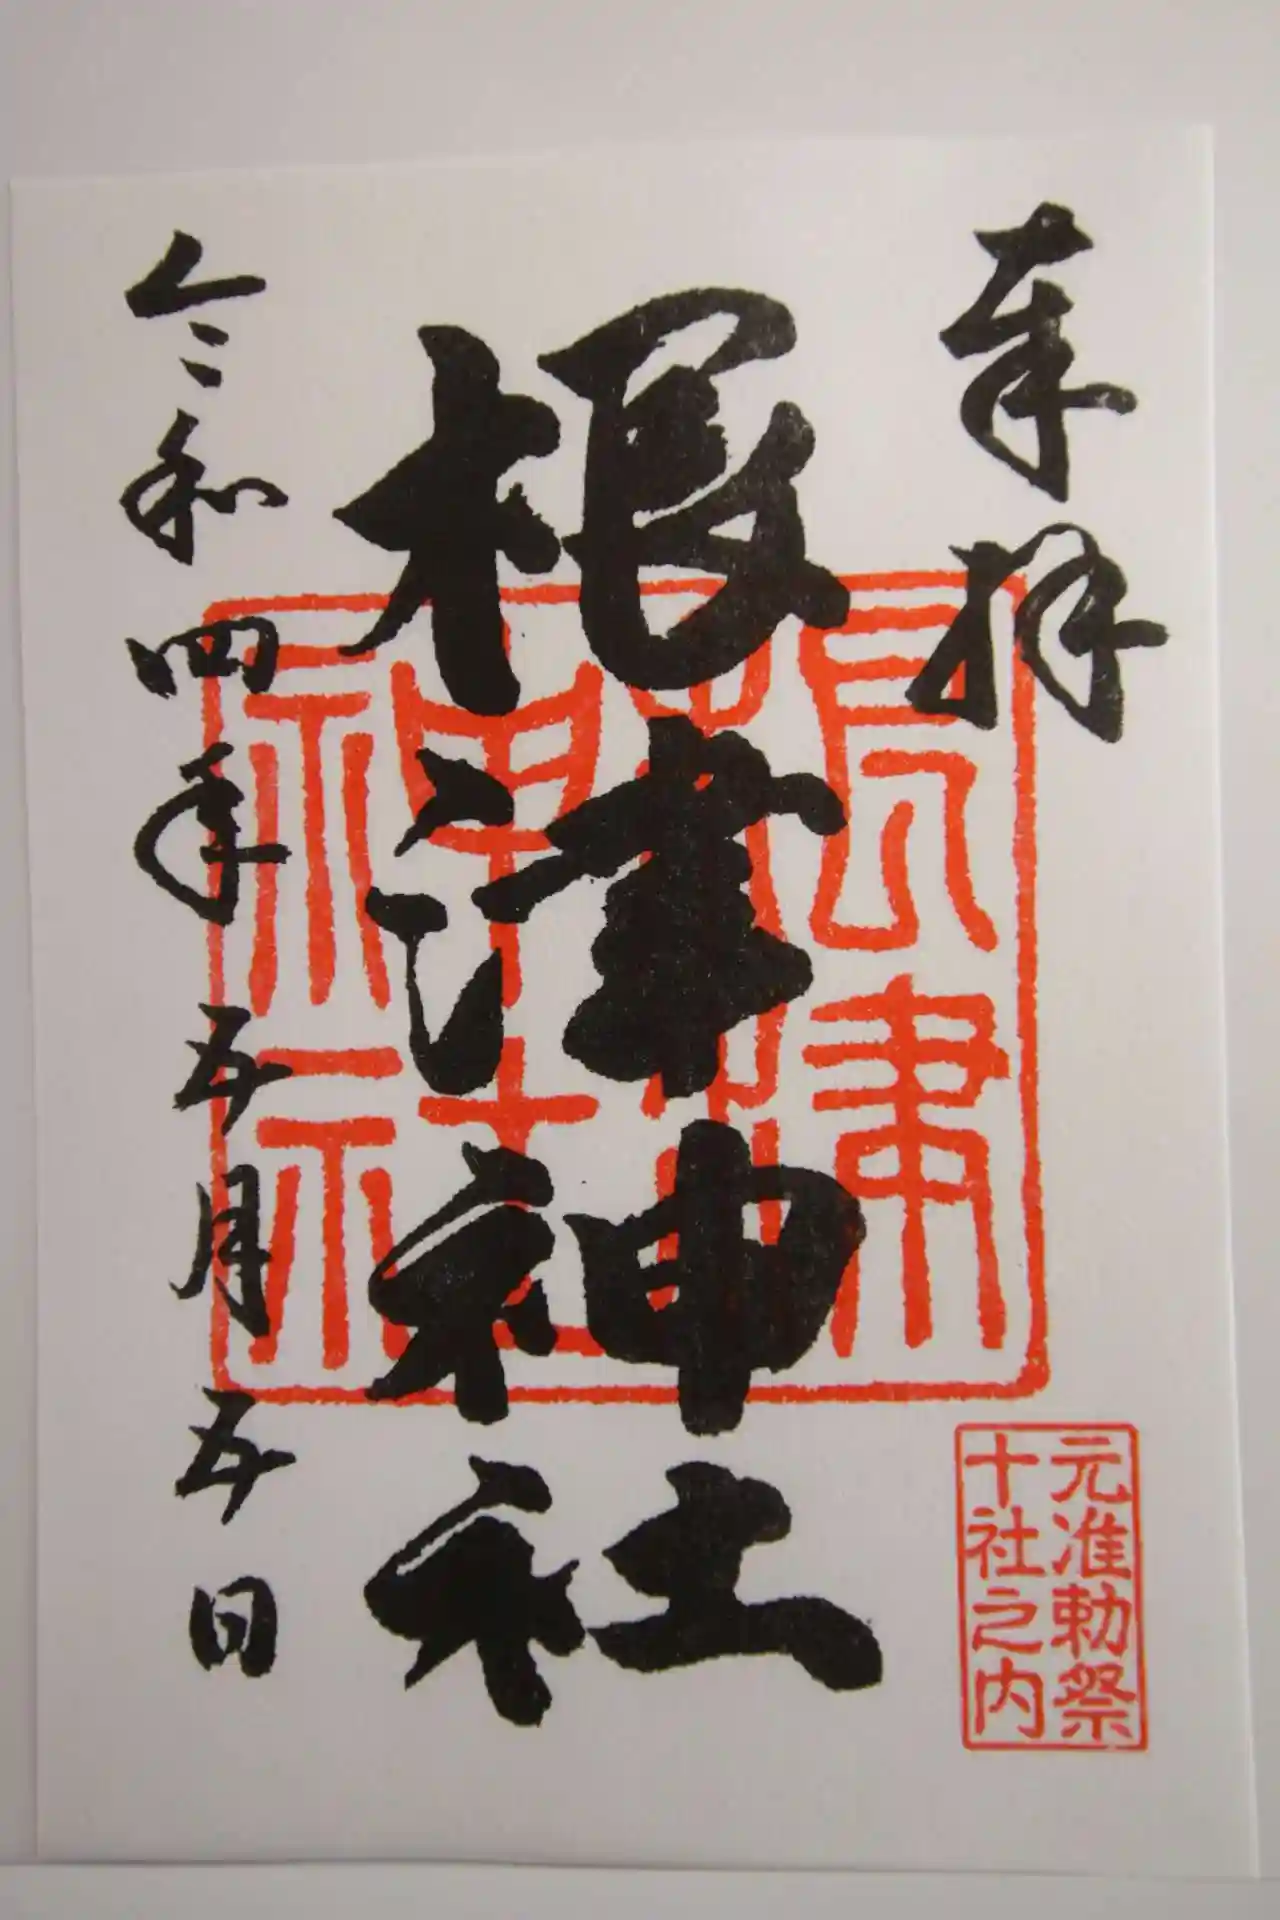 奉拝
根津神社
令和四年五月五日
根津
神社
元准勅祭
十社之内